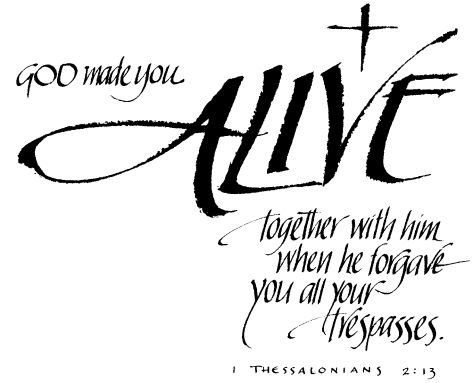 GOD made you
ALIVE
together with him
when he forgave
you all your
trespasses.
1 THESSALONIANS 2:13